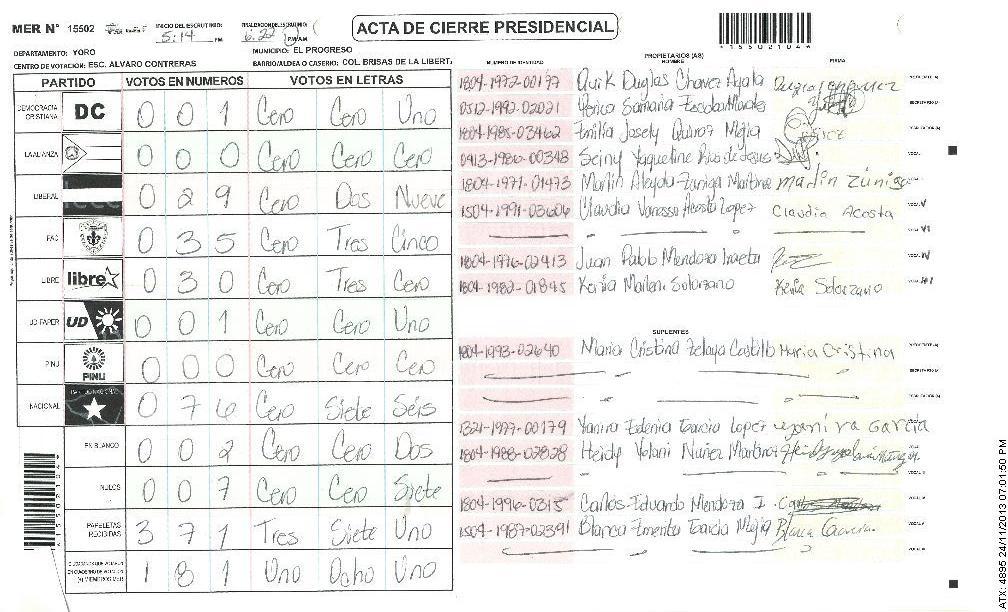 MER N° 15502 INICIO DEL ESCRUTINIO: 5:14 PM FINALIZACION DEL ESCRUTINIO: 6:22 PM AM
ACTA DE CIERRE PRESIDENCIAL
*15502104*
DEPARTAMENTO: YORO MUNICIPIO: EL PROGRESO
CENTRO DE VOTACION: ESC. ALVARO CONTRERAS BARRIO/ALDEA O CASERIO: COL. BRISAS DE LA LIBERT.
PARTIDO VOTOS EN NUMEROS VOTOS EN LETRAS
DEMOCRACIA CRISTIANA DC 0 0 1 Cero Cero Uno
LA ALIANZA 0 0 0 Cero Cero Cero
LIBERAL 0 2 9 Cero Dos Nueve
PAC 0 3 5 Cero Tres Cinco
LIBRE libre 0 3 0 Cero Tres Cero
UD-FAPER UD 0 0 1 Cero Cero Uno
PINU PINU 0 0 0 Cero Cero Cero
NACIONAL 0 7 6 Cero Siete Séis
EN BLANCO 0 0 2 Cero Cero Dos
NULOS 0 0 7 Cero Cero Siete
PAPELETAS RECIBIDAS 3 7 1 Tres Siete Uno
CIUDADANOS QUE VOTARON EN CUADERNO DE VOTACION (+) MIEMBROS MER 1 8 1 Uno Ocho Uno
PROPIETARIOS (AS)
NUMERO DE IDENTIDAD NOMBRE FIRMA
1804-1972-00197 Chavez Ayala
0512-1992-02021 Samaria
1804-1985-03462 Emilia Josely Quiroz Mejia
0413-1986-00348 Seiny Yaqueline Rios de Jesus
1804-1971-01473 Marlin Martinez
1504-1991-03606 Claudia Vanessa Acosta Lopez Claudia Acosta
1804-1976-02413 Juan Pablo Mendoza Iraeta
1804-1982-01845 Kenia Marleni Solorzano Kenia Solorzano
SUPLENTES
1804-1993-02640 Maria Cristina Zelaya Castillo Maria Cristina
1321-1977-00179 Yanira Edenia Garcia Lopez García
1804-1988-02828 Heidy Yolani Nuñez Martinez
1804-1996-0315 Carlos Eduardo Mendoza I.
1504-1987-02391 Blanca Ementa Garcia Mejia Blanca Garcia
ATX: 4895 24/11/2013 07:01:50 PM